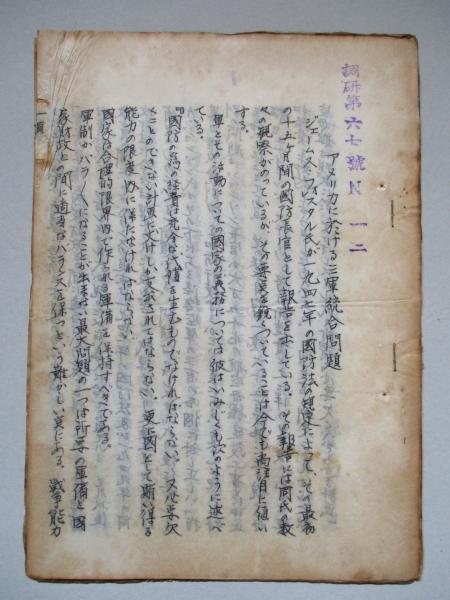 調研第六七號N 一二
アメリカに於ける三軍統合問題
ジェームス・フォレスタル氏が一九四七年の國防法の規定によって、その最初
の十五ヶ月間の國防長官として報告を出している。その報告には同氏の数
々の観察がのっているが、その要点を鋭くついていることは今でも尚注目に値い
する。
軍とその活動についての國家の義務については彼はいみじくも次のように述べ
ている。
『國防の為の経費は完全な代償を生むものでなければならない。又必要欠
くことのできない計画にだけしか支出されてはならない。更に國として賄い得る
能力の限度内に保たなければならない。
國家は合理的限界内で作られる軍備を保持すべきである。
軍制がバラバラになることが出来ない最大問題の一つは所要の軍備と國
家財政との間に適当なバランスを保つという難かしい点にある。戦争能力
一頁